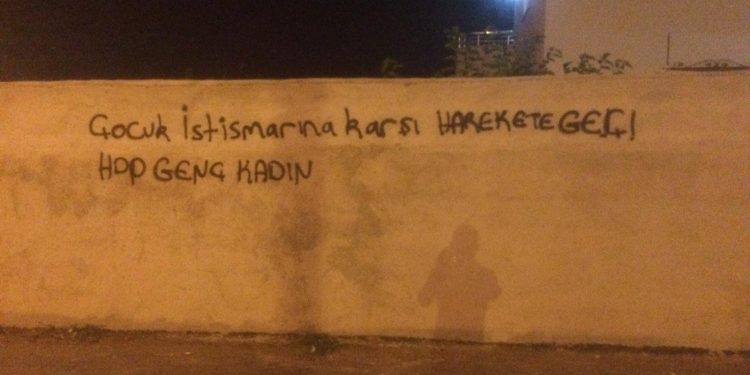 Çocuk İstismarına karşı HAREKETE GEÇ!
HDP GENÇ KADIN